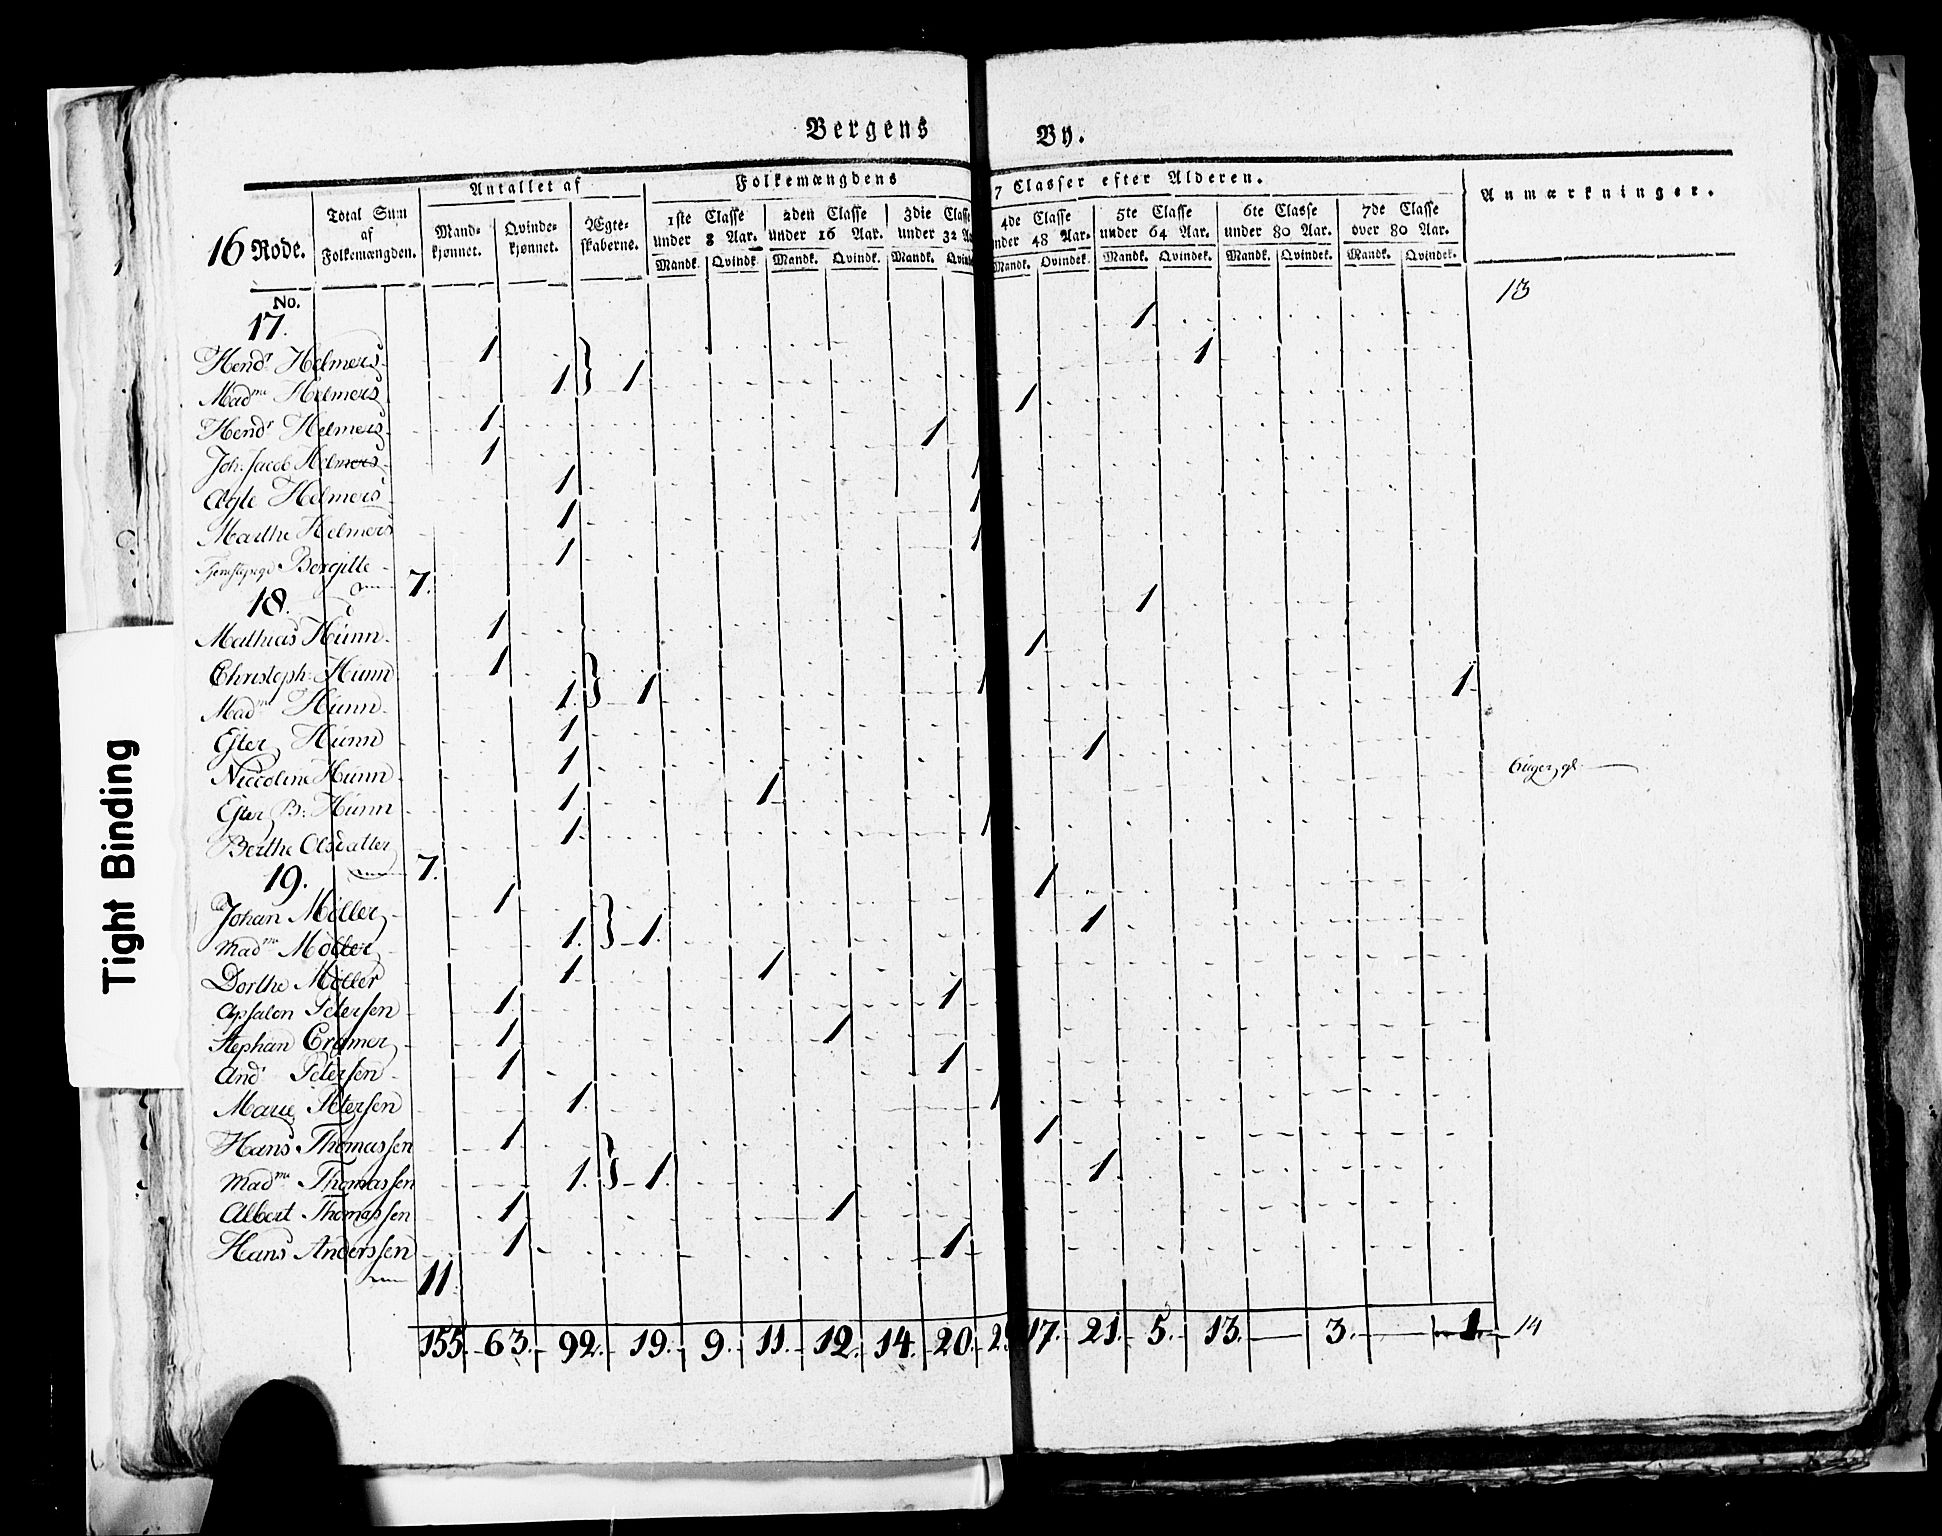 Bergens By.
Antallet af Folkemængdens 7 Classer efter Alderen. Anmærkninger.
16 Rode. Total Sum af Folkemængden. Mandkjønnet. Qvindekjønnet. Ægteskaberne. 1ste Classe under 8 Aar. 2den Classe under 16 Aar. 3die Classe under 32 4de Classe under 48 Aar. 5te Classe under 64 Aar. 6te Classe under 80 Aar. 7de Classe over 80 Aar.
Mandk. Qvindk. Mandk. Qvindk. Mandk. Mandk. Qvindek. Mandk. Qvindek. Mandk. Qvindek. Mandk. Qvindek.
No. 13
17.
Hendr Helmers 1 1
Madme Helmers 1 1 1
Hendr Helmers 1 1
Joh: Jacob Helmers 1 1
Helmers 1 1
Marthe Helmers 1 1
Bergitte 1 1
7.
18.
Mathias Hünn 1 1
Christoph: Hünn 1 1
Madme Hünn 1 1 1
Ester Hünn 1 1
Niccoline Hünn 1 1
Ester B: Hünn 1 1
Berthe Olsdatter 1 1
7.
19.
Johan Möller 1 1
Madme Möller 1 1 1
Dorthe Möller 1 1
Apsalon Petersen 1 1
Stephan Cramer 1 1
Andr Petersen 1 1
Marie Petersen 1 1
Hans Thomassen 1 1
Madme Thomassen 1 1 1
Albert Thomassen 1 1
Hans Anderssen 1 1
11.
155. 63. 92. 19. 9. 11. 12. 14. 20. 17. 21. 5. 13. 3. 1. 14
Tight Binding